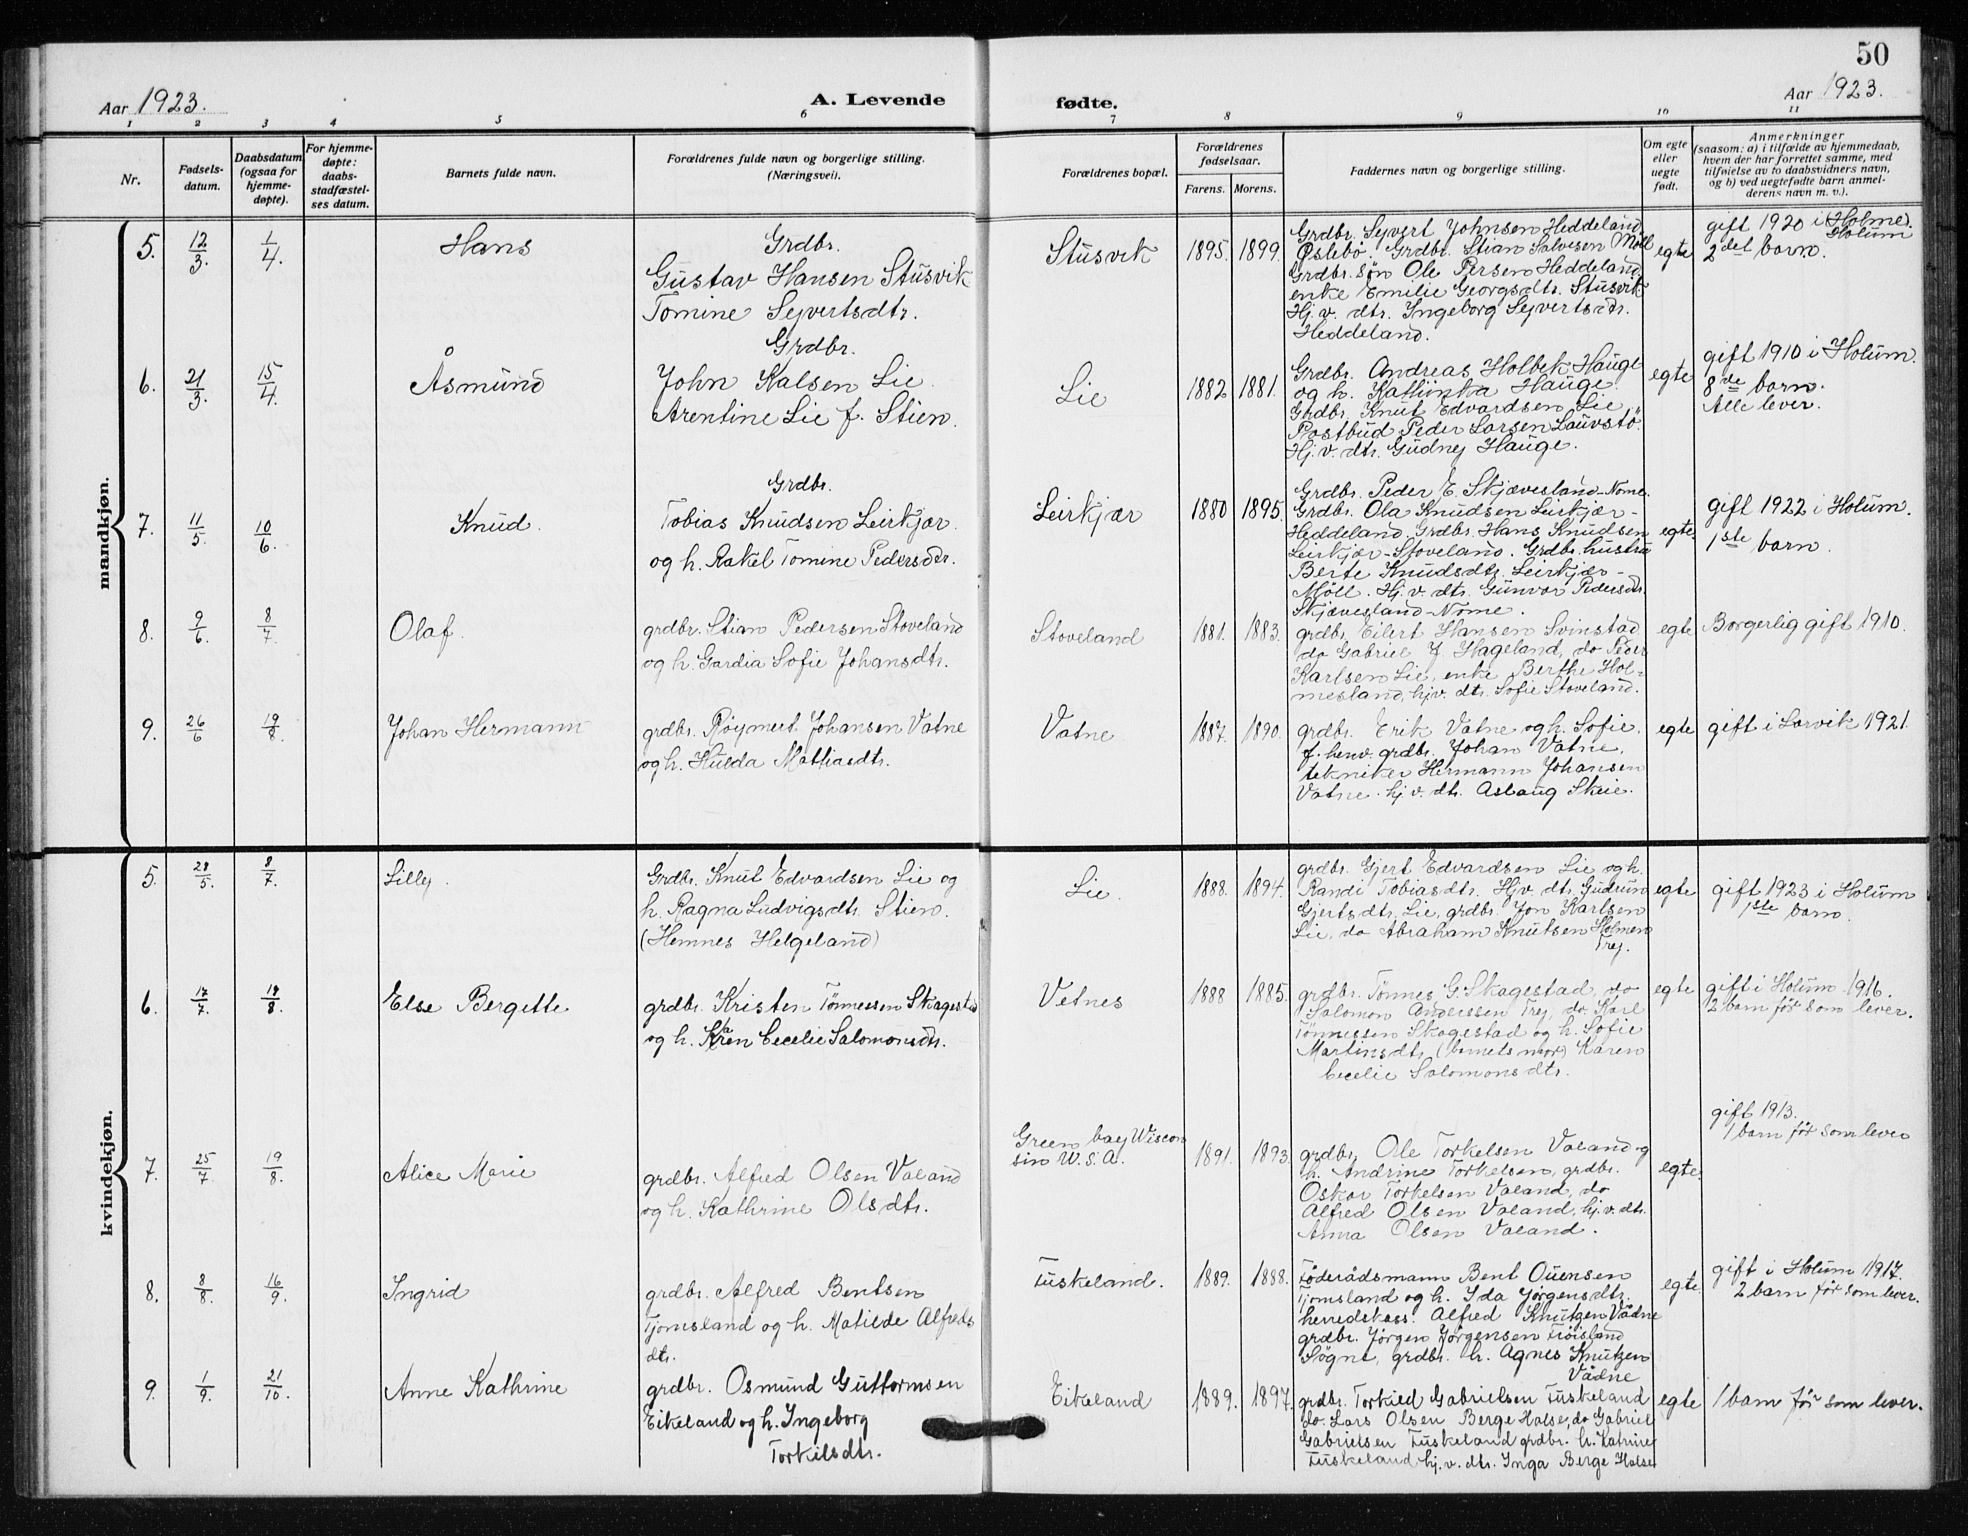 50
Aar 1923.
A. Levende
fødte.
Aar 1923.
1 2 3 4 5 6 7 8 9 10 11
Nr.
Fødsels-
datum.
Daabsdatum
(ogsaa for
hjemme-
døpte).
For hjemme-
døpte:
daabs-
stadfæstel-
ses datum.
Barnets fulde navn.
Forældrenes fulde navn og borgerlige stilling.
(Næringsvei).
Forældrenes bopæl.
Forældrenes
fødselsaar.
Farens. Morens.
Faddernes navn og borgerlige stilling.
Om egte
eller
uegte
født.
Anmerkninger
(saasom: a) i tilfælde av hjemmedaab,
hvem der har forrettet samme, med
tilføielse av to daabsvidners navn,
og b) ved uegtefødte barn anmel-
derens navn m. v.).
mandkjøn.
5. 12/3. 1/4. Hans
Grdbr.
Gustav Hansen Stusvik
Tomine Syvertsdtr.
Stusvik 1895. 1899.
Grdbr. Syvert Johnsen Heddeland
Øslebö. Grdbr. Stian Salvesen Möll
Grdbr. søn Ole Persen Heddeland
enke Emilie Georgsdtr. Stusvik
Hj. v. dtr. Ingeborg Syvertsdtr.
Heddeland.
egte
gift 1920 i (Holme).
Holum
2del barn.
6. 21/3. 15/4. Åsmund
Grdbr.
John Kalsen Lie
Arentine Lie f. Stien.
Lie 1882 1881.
Grdbr. Andreas Holbek Hauge
og h. Kathinka Hauge.
Grdbr. Knut Edvardsen Lie,
Postbud Peder Larsen Lauvstö.
Hj. v. dtr. Gudny Hauge.
egte
gift 1910 i Holum.
8de barn.
Alle lever.
7. 11/5. 10/6. Knud.
Grdbr.
Tobias Knudsen Leirkjær.
og h. Rakel Tomine Pedersdtr.
Leirkjær 1880 1895.
Grdbr. Peder E. Skjævesland-Nome.
Grdbr. Ola Knudsen Leirkjær-
Heddeland, Grdbr. Hans Knudsen
Leirkjær-Stoveland. Grdbr. hustru
Berte Knudsdtr. Leirkjær-
Möll. Hj. v. dtr. Gunvor Pedersdtr.
Skjævesland-Nome.
egte.
gift 1922 i Holum.
1ste barn.
8. 9/6. 8/7. Olaf.
grdbr. Stian Pedersen Stoveland
og h. Gardia Sofie Johansdtr.
Stoveland 1881. 1883.
grdbr. Eilert Hansen Svinstad
do Gabriel J. Hageland, do Peder
Karlsen Lie, enke Berthe Hol-
mesland, hjv. dtr. Sofie Stoveland.
egte
Borgerlig gift 1910.
9. 26/6 19/8. Johan Hermann
grdbr. Röymert Johansen Vatne
og h. Hulda Mathiasdtr.
Vatne 1887. 1890.
grdbr. Erik Vatne og h. Sofie.
f. henv. grdbr. Johan Vatne,
tekniker Hermann Johansen
Vatne. hj. v. dtr. Aslaug Skeie.
egte
gift i Larvik 1921.
kvindekjøn.
5. 28/5. 8/7. Lilly.
Grdbr. Knut Edvardsen Lie og
h. Ragna Ludvigsdtr. Stien.
(Hemnes Helgeland)
Lie. 1888. 1894.
grdbr. Gjert Edvardsen Lie og h.
Randi Tobiasdtr. Hjv. dtr. Gudrun
Gjertsdtr. Lie, grdbr. Jon Karlsen
Lie, do Abraham Knutsen Holmen
Trej.
egte
gift 1923 i Holum
1ste barn.
6. 17/7. 18/8. Else Bergitte
grdbr. Kristen Tönnessen Skagestad
og h. Karen Cecelie Salomonsdtr.
Vetnes 1888 1885.
grdbr. Tönnes G. Skagestad, do
Salomon Anderssen Trej, do. Karl
Tönnessen Skagestad og h. Sofie
Martinsdtr. (barnets mor) Karen
Cecelie Salomonsdtr.
egte
gift i Holum 1916.
2 barn för som lever.
7. 25/7 19/8. Alice Marie
grdbr. Alfred Olsen Valand
og h. Kathrine Olsdtr.
Green bay Wiscon
sin U.S.A.
1891. 1893.
grdbr. Ole Torkelsen Valand og
h. Andrine Torkelsen, grdbr.
Oskar Torkelsen Valand, do
Alfred Olsen Valand, hj. v. dtr.
Anna Olsen Valand.
egte.
gift 1913.
1 barn för som lever
8. 8/8. 16/9. Ingrid
grdbr. Alfred Bentsen
Tjomsland og h. Matilde Alfreds
dtr.
Fuskeland. 1889. 1888.
Föderådsmann Bent Ouensen
Tjomsland og h. Ida Jörgensdtr.
herredskass. Alfred Knutzen Vådne
grdbr. Jörgen Jörgensen Fröisland
Søgne, grdbr. h. Agnes Knutzen
Vådne
egte.
gift i Holum 1917.
2 barn för som lever.
9. 1/9. 21/10. Anne Kathrine
grdbr. Osmund Guttormsen
Eikeland og h. Ingeborg
Torkilsdtr.
Eikeland 1889. 1897.
grdbr. Torkild Gabrielsen Fuskeland
do. Lars Olsen Berge Halse, do Gabriel
Gabrielsen Fuskeland grdbr. h. Katrine
Fuskeland hj. v. dtr. Inga Berge Halse
egte
1 barn för som lever.